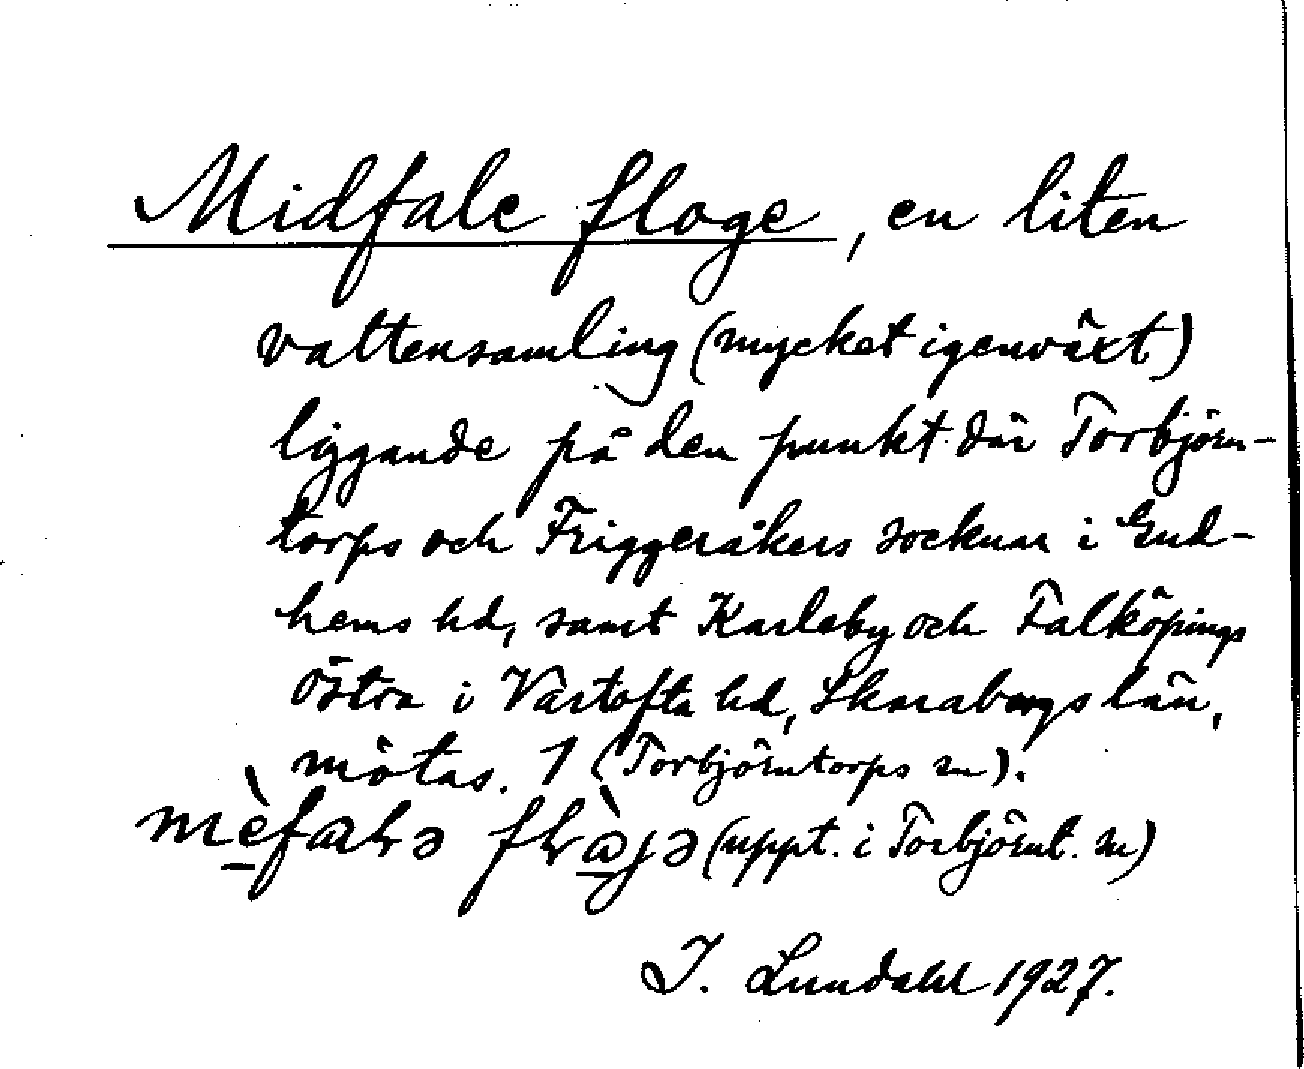 Midfale floge, en liten
vattensamling (mycket igenväxt)
liggande på den punkt där Torbjörn-
torps och Friggeråkers socknar i Gud-
hems hd, samt Karleby och Falköpings
östra i Vartofta hd, Skaraborgs län,
mötas. 1 (Torbjörntorps sn).
mèfaɬə fɬàjə (uppt. i Torbjörnt. sn)
I. Lundahl 1927.